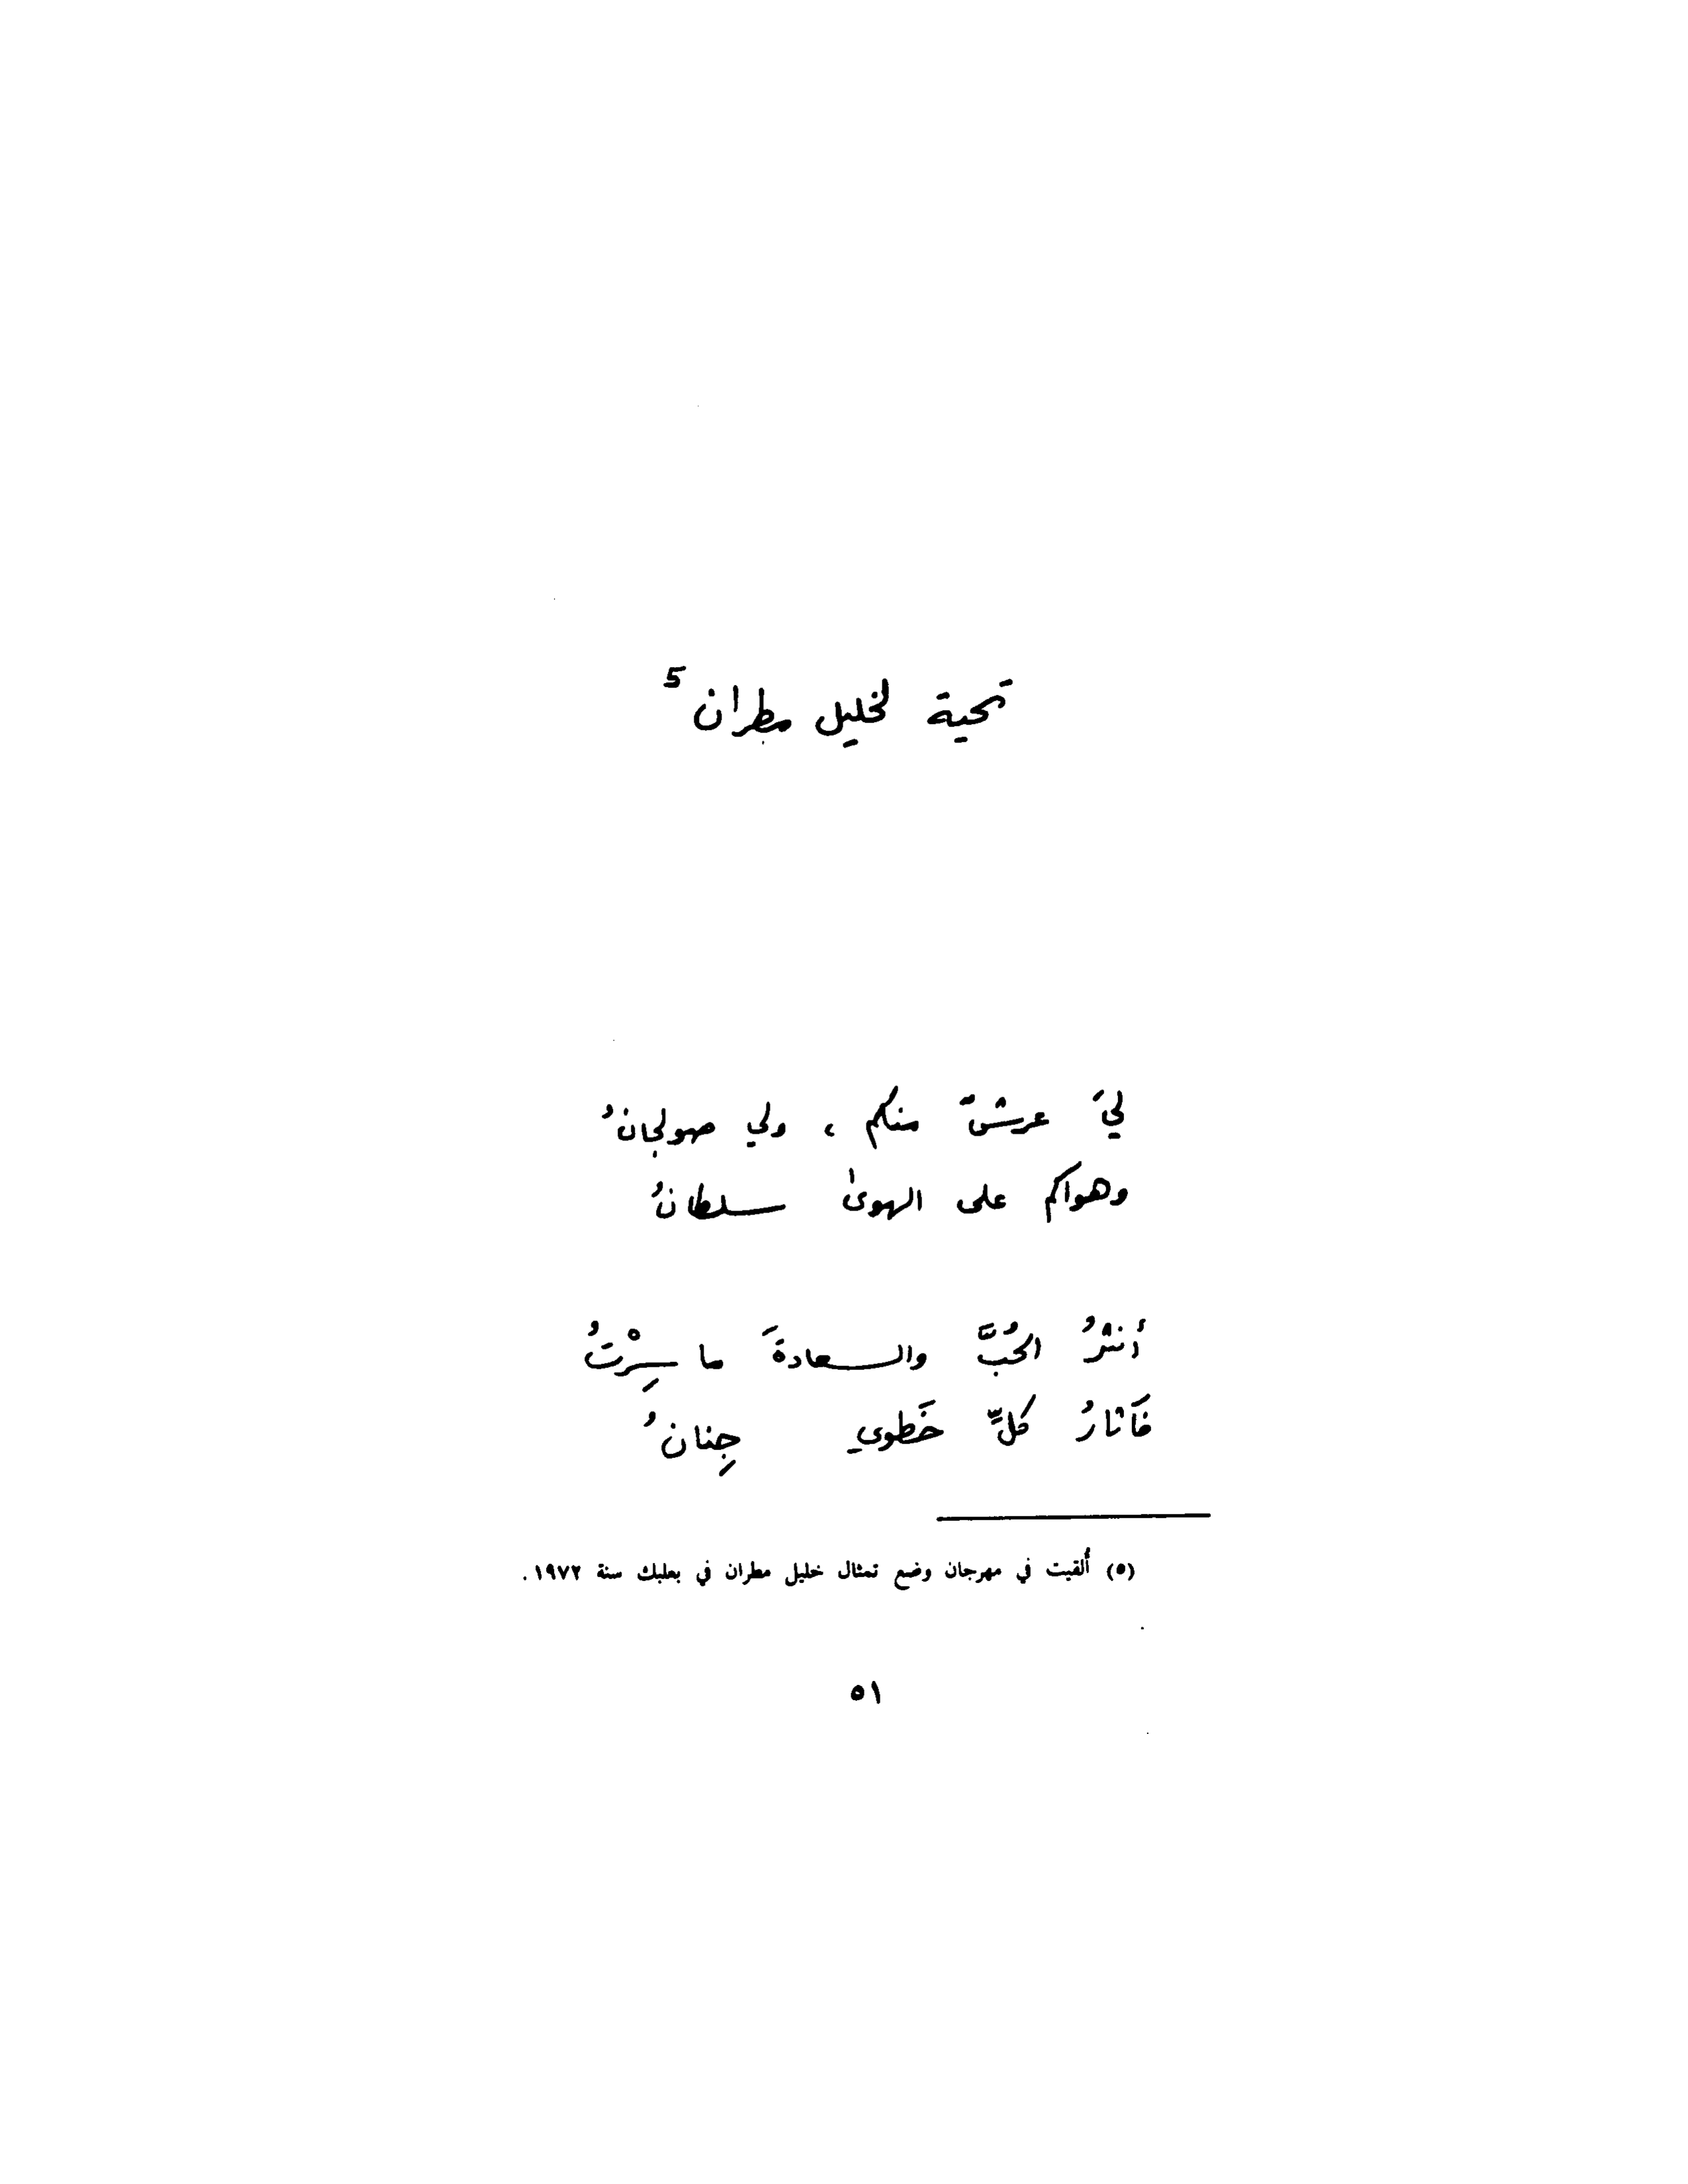 تحية لخليل مطران 5
ليَ عرشٌ منكم ، ولي صولجانُ
وهواكم على الهوىٰ سلطانُ
أنثرُ الحُبَّ والسعادةَ ما سِرْتُ
فَآثارُ كلِّ خَطوي جِنانُ
(٥) أُلقيت في مهرجان وضع تمثال خليل مطران في بعلبك سنة ١٩٧٢ .
٥١